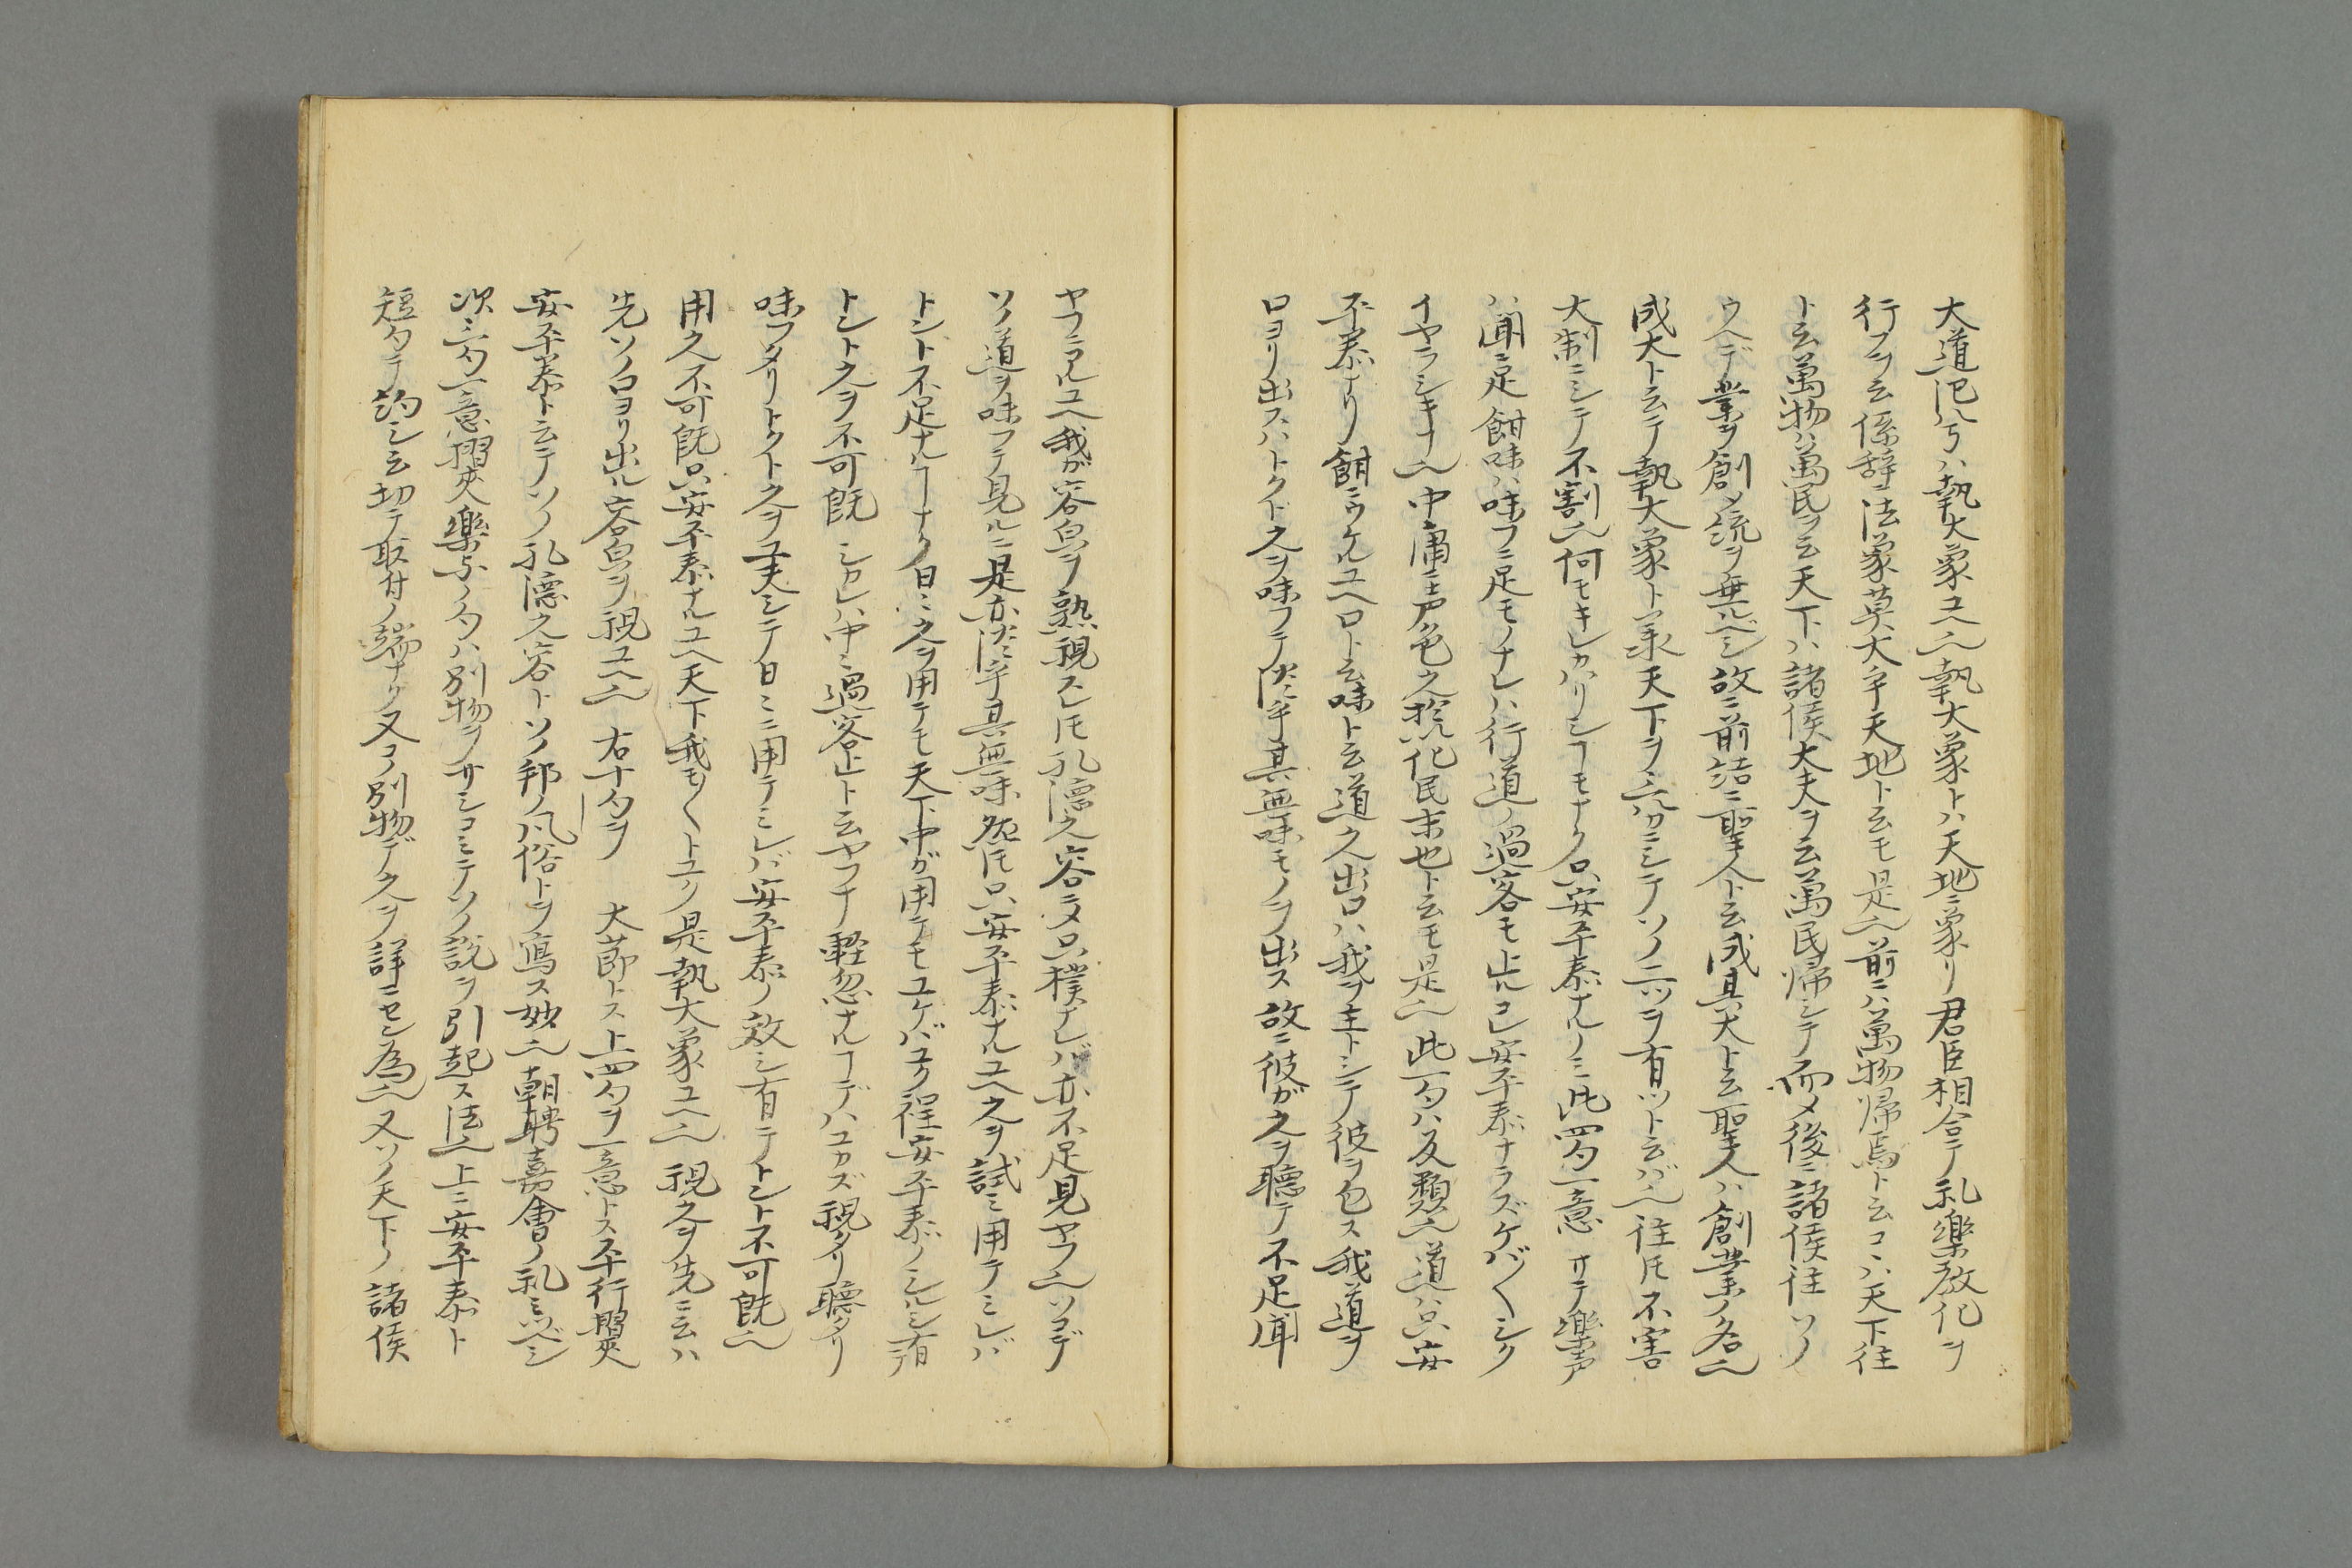 大道汜兮ハ執大象ユヘ也執大象トハ天地ニ象リ君臣相合テ礼樂教化ヲ
行フヲ云係辞ニ法象莫大乎天地ト云モ是也前ニハ萬物帰焉ト云コヽハ天下往
ト云萬物ハ萬民ヲ云天下ハ諸侯大夫ヲ云萬民帰シテ而メ後ニ諸侯往ソノ
ウヘデ業ヲ創メ統ヲ垂ルベシ故ニ前詰ニ聖人ト云成其大ト云聖人ハ創業ノ名也
成大ト云テ執大象ト承天下ヲ三分ニシテソノ二ツヲ有ツト云バ也往𪜈不害
大制ニシテ不割也何モキレカハリシヿモナク只安平泰ナルノミ此四句一意 サテ樂声
ハ聞ニ足餌味ハ味フニ足モノナレハ行道ノ過客モ止ルコレ安平泰ナラズケバ〱シク
イヤラシキナ也中庸ニ声色之於化民末也ト云モ是也此一句ハ反類也道ハ只安
平泰ナリ餌ニウケルユヘ口ト云味ト云道之出口ハ我ヲ主トシテ彼ヲ包ス我道ヲ
口ヨリ出スハトクト之ヲ味フテ淡乎其無味モノヲ出ス故ニ彼ガ之ヲ聴テ不足聞
ヤフニアルユヘ我ガ容皃ヲ熟視スレ𪜈孔德之容ニメ只樸ナレバ亦不足見ヤフ也ソコデ
ソノ道ヲ味フテ見ルニ是亦淡乎其無味然𪜈只安平泰ナルユヘ之ヲ試ミ用テミレバ
トント不足ナルヿナク日ミ之ヲ用テモ天下中ガ用テモユケバユク程安平泰ノシルシ有テ
トント之ヲ不可既 シカレハ中ミ過客止ト云ヤフナ軽忽ナルヿデハユカズ視タリ聴タリ
味フタリトクト之ヲ工夫シテ日ミニ用テミレバ安平泰ノ效シ有テトント不可既也
用之不可既只安平泰ナルユヘ天下我モ〱トユク是執大象ユヘ也視之ヲ先ニ云ハ
先ソノ口ヨリ出ル容皃ヲ視ユヘ也 右十句ヲ 大節トス上四句ヲ一意トス平行摺夾
安平泰ト云テソノ孔德之容トソノ邦ノ風俗トヲ寫ス妙也朝聘嘉會ノ礼ミツベシ
次三句一意摺夾樂与ノ句ハ別物ヲサシコミテソノ説ヲ引起ス法也上ニ安平泰ト
短句テ約シ云切テ取付ノ端ナク又コノ別物デ之ヲ詳ニセン為也又ソノ天下ノ諸侯